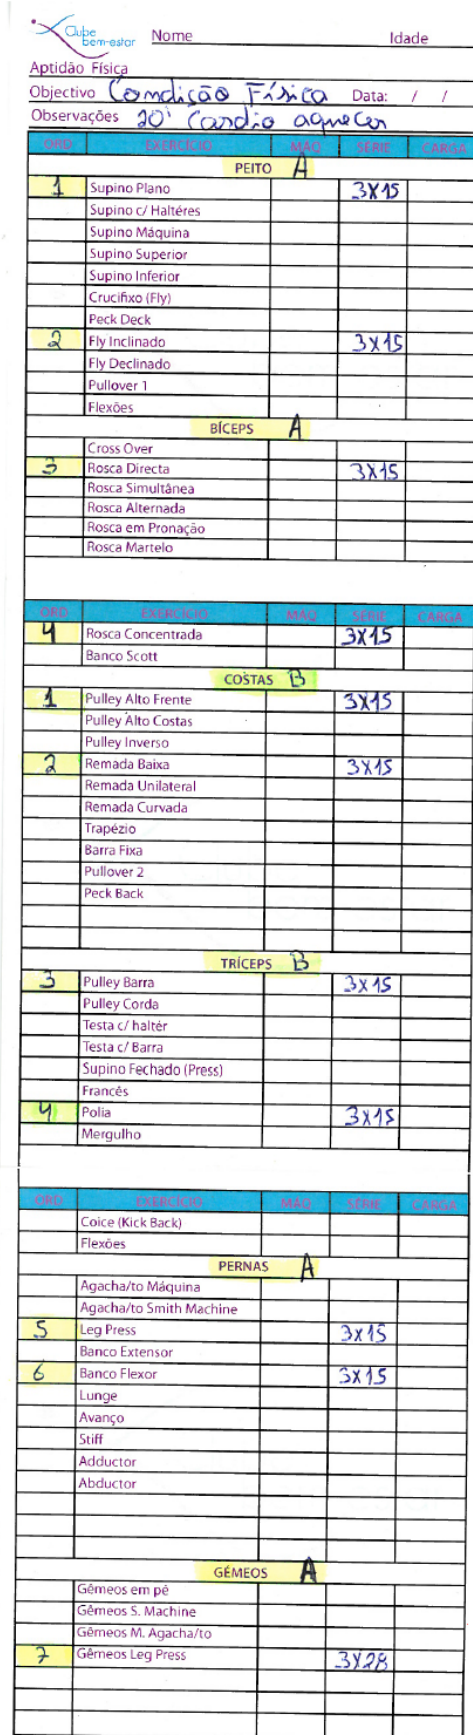 Clube
bem-estar
Nome Idade
Aptidão Física
Objectivo Condição Física Data: / /
Observações 20' Cardio aquecer
ORD EXERCÍCIO MAQ SÉRIE CARGA
PEITO A
1 Supino Plano 3X15
Supino c/ Haltéres
Supino Máquina
Supino Superior
Supino Inferior
Crucifixo (Fly)
Peck Deck
2 Fly Inclinado 3X15
Fly Declinado
Pullover 1
Flexões
BÍCEPS A
Cross Over
3 Rosca Directa 3X15
Rosca Simultânea
Rosca Alternada
Rosca em Pronação
Rosca Martelo
ORD EXERCÍCIO MAQ SÉRIE CARGA
4 Rosca Concentrada 3X15
Banco Scott
COSTAS B
1 Pulley Alto Frente 3X15
Pulley Alto Costas
Pulley Inverso
2 Remada Baixa 3X15
Remada Unilateral
Remada Curvada
Trapézio
Barra Fixa
Pullover 2
Peck Back
TRÍCEPS B
3 Pulley Barra 3X15
Pulley Corda
Testa c/ haltér
Testa c/ Barra
Supino Fechado (Press)
Francés
4 Polia 3X15
Mergulho
ORD EXERCÍCIO MAQ SÉRIE CARGA
Coice (Kick Back)
Flexões
PERNAS A
Agacha/to Máquina
Agacha/to Smith Machine
5 Leg Press 3X15
Banco Extensor
6 Banco Flexor 3X15
Lunge
Avanço
Stiff
Adductor
Abductor
GÉMEOS A
Gêmeos em pé
Gêmeos S. Machine
Gêmeos M. Agacha/to
7 Gêmeos Leg Press 3X28